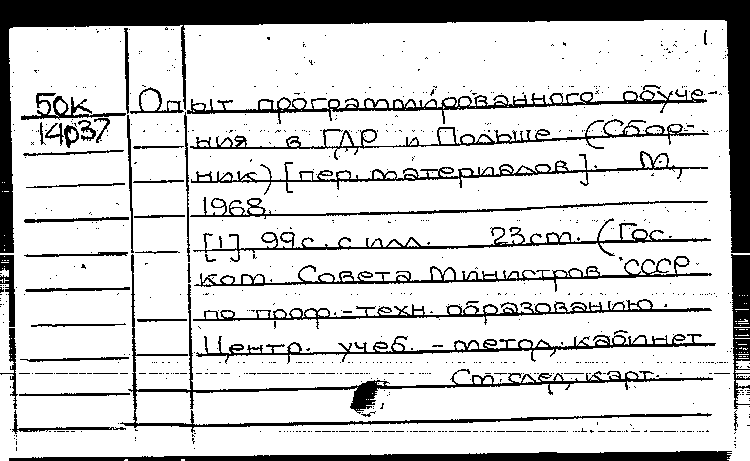 1
50к Опыт программированного обуче-
14р37 ния в ГДР и Польше (Сбор-
ник) [пер. материалов]. М.,
1968.
[1], 99с. с илл. 23см. (Гос.
ком. Совета Министров СССР
по проф.-техн. образованию.
Центр. учеб. - метод. кабинет
См. след. карт.